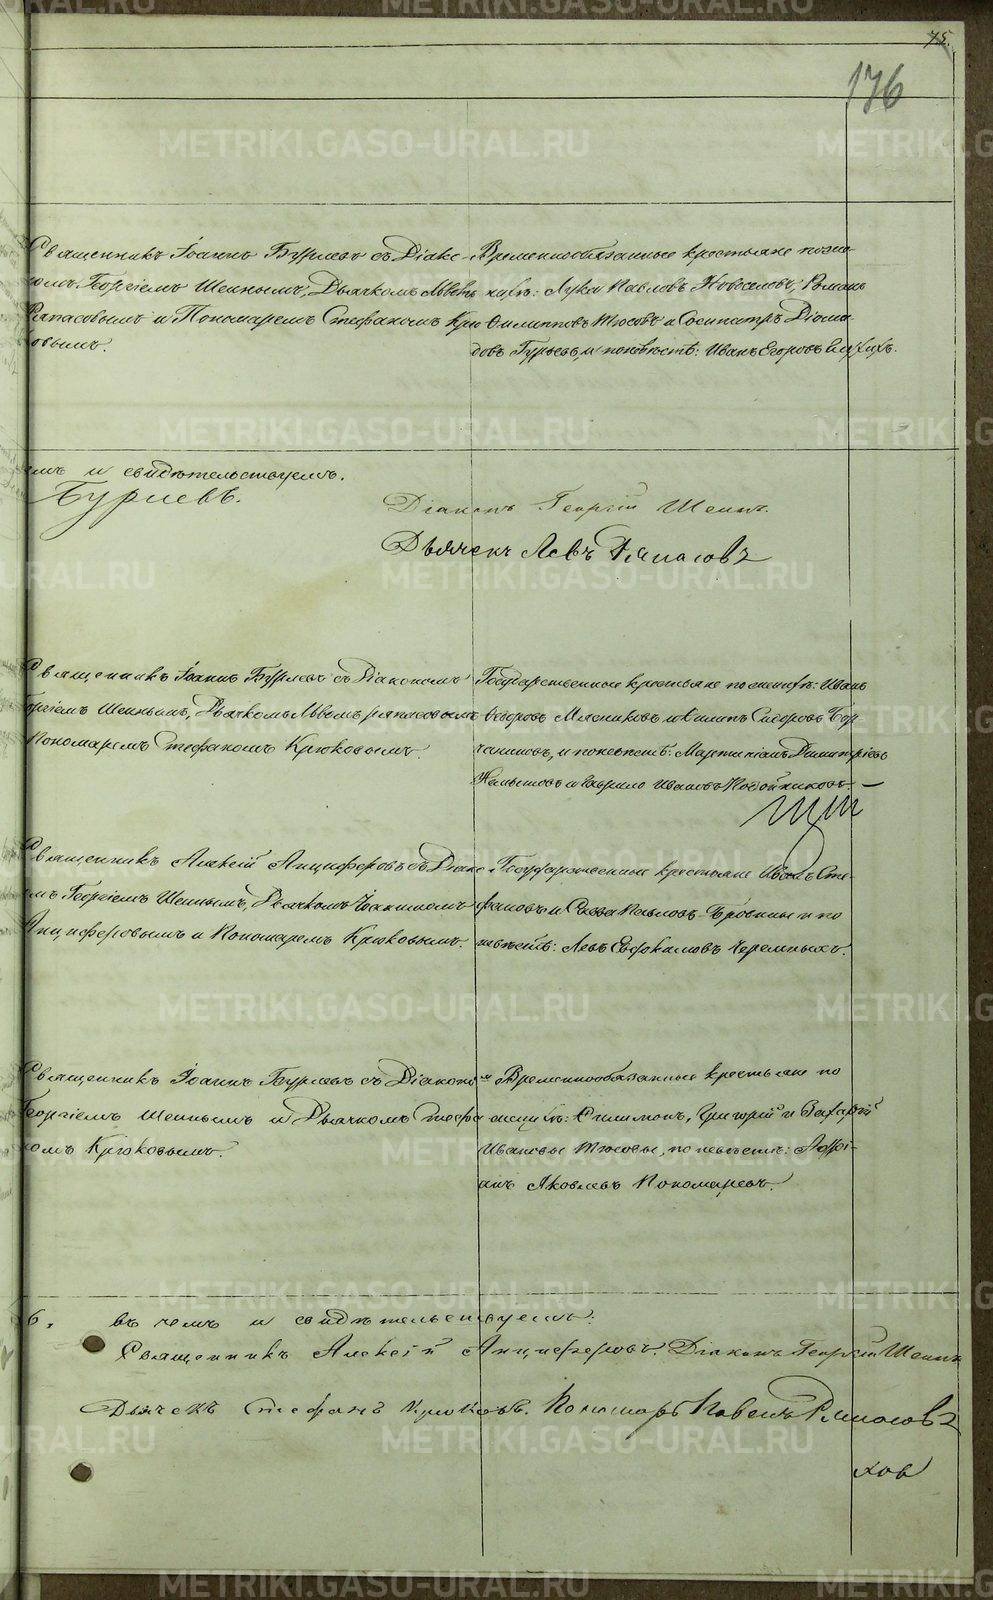 75.
176
Священникъ Іоаннъ Бурлевъ съ Діако-
номъ Георгіемъ Шеинымъ, Дьячкомъ Львомъ
Ряпасовымъ и Пономаремъ Стефаномъ Крю
ковымъ.
Временнообязанные крестьяне по же-
нихѣ: Лука Павловъ Новоселовъ, Романъ
Филипповъ Тюсовъ и Сосипатръ Діоми-
довъ Гурьевъ, и по невѣстѣ: Иванъ Егоровъ
емъ и свидѣтельствуемъ.
Бурлевъ.
Діаконъ Георгій Шеинъ.
Дьячекъ Левъ Ряпасовъ
Священникъ Іоаннъ Бурлевъ съ Діакономъ
Георгіемъ Шеинымъ, Дьячкомъ Львомъ Ряпасовымъ
Пономаремъ Стефаномъ Крюковымъ.
Государственные крестьяне по женихѣ: Иванъ
Ѳедоровъ Мясниковъ и Филипъ Сидоровъ Бор-
чаниновъ, и по невѣстѣ: Мартиніанъ Димитріевъ
и Гаврило Ивановъ
Священникъ Алексій Анциферовъ съ Діако
омъ Георгіемъ Шеинымъ, Дьячкомъ Іоакимомъ
Анциферовымъ и Пономаремъ Крюковымъ.
Государственные крестьяне Иванъ Сте-
фановъ и Савва Павловъ и по
невѣстѣ: Левъ Евфимовъ Черемныхъ.
Священникъ Іоаннъ Бурлевъ съ Діаконом
Георгіемъ Шеинымъ и Дьячкомъ Стефа
номъ Крюковымъ.
Временнообязанные крестьяне по
женихѣ: Филимонъ, Григорій и Захарій
Ивановы Тюсовы, по невѣстѣ:
Яковлевъ Пономаревъ.
6. въ чемъ и свидѣтельствуемъ:
Священникъ Алексій Анциферовъ. Діаконъ Георгій Шеинъ
Дьячекъ Стефанъ Крюковъ. Пономарь Павелъ Ряпасовъ
ховъ